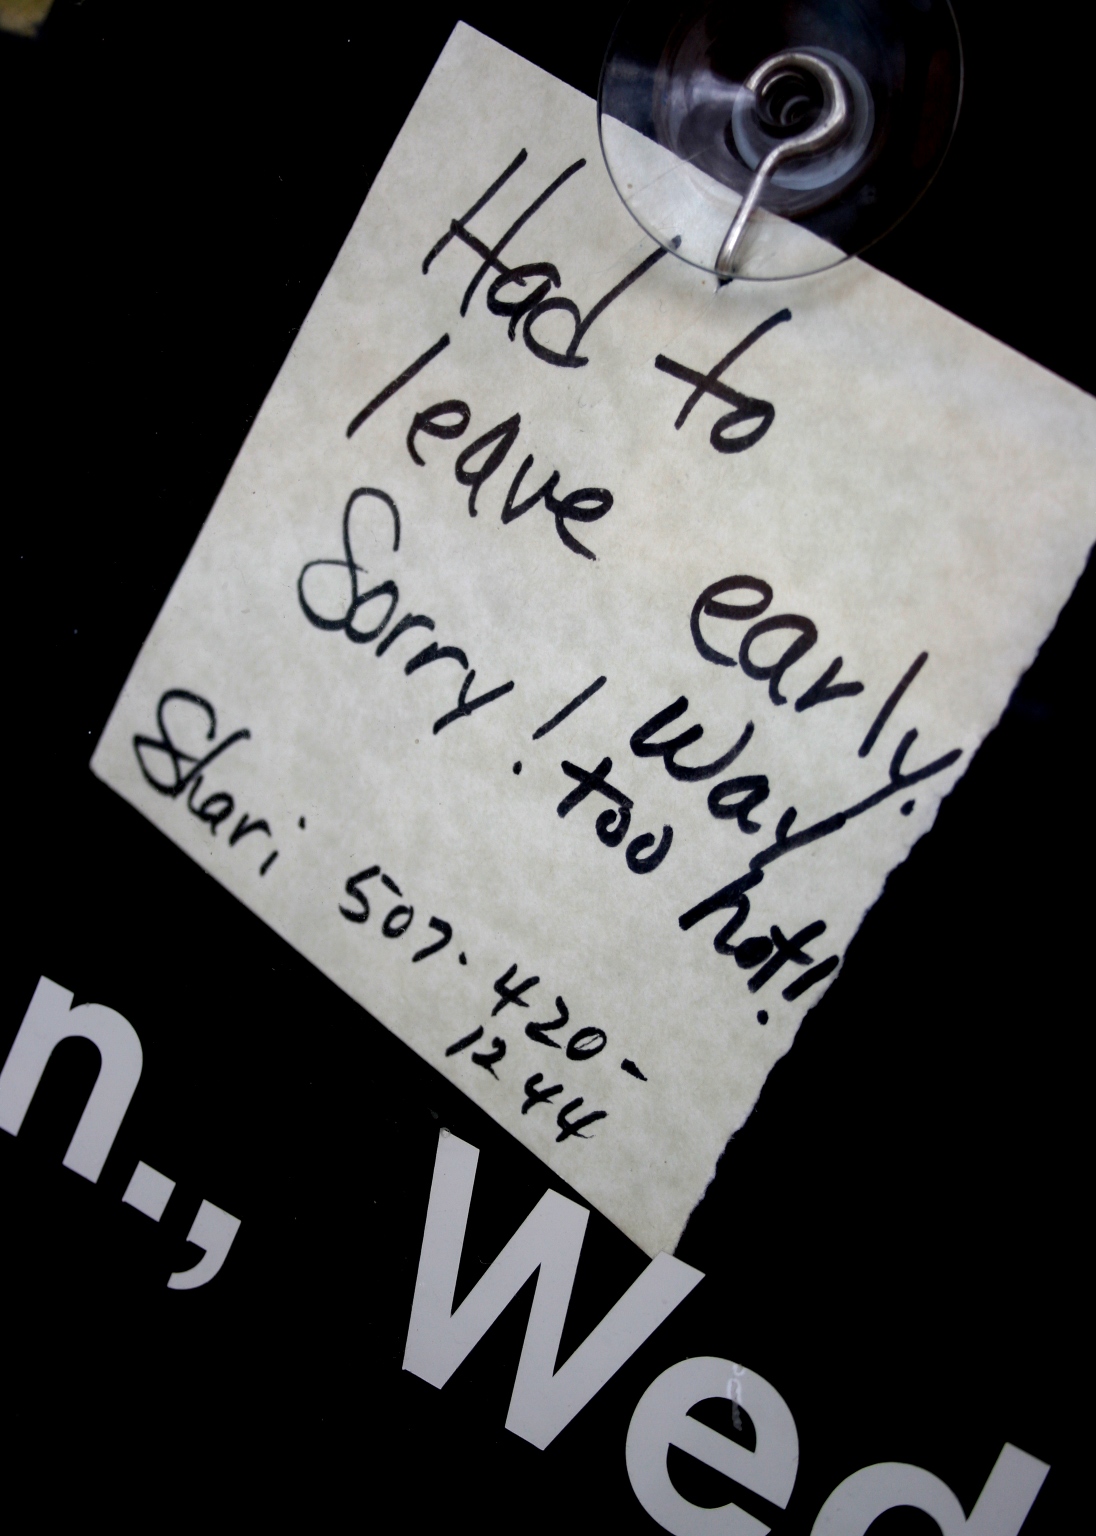 Had to
leave early.
Sorry! Way
too hot!
Shari 507-420-
1244
n., Wed